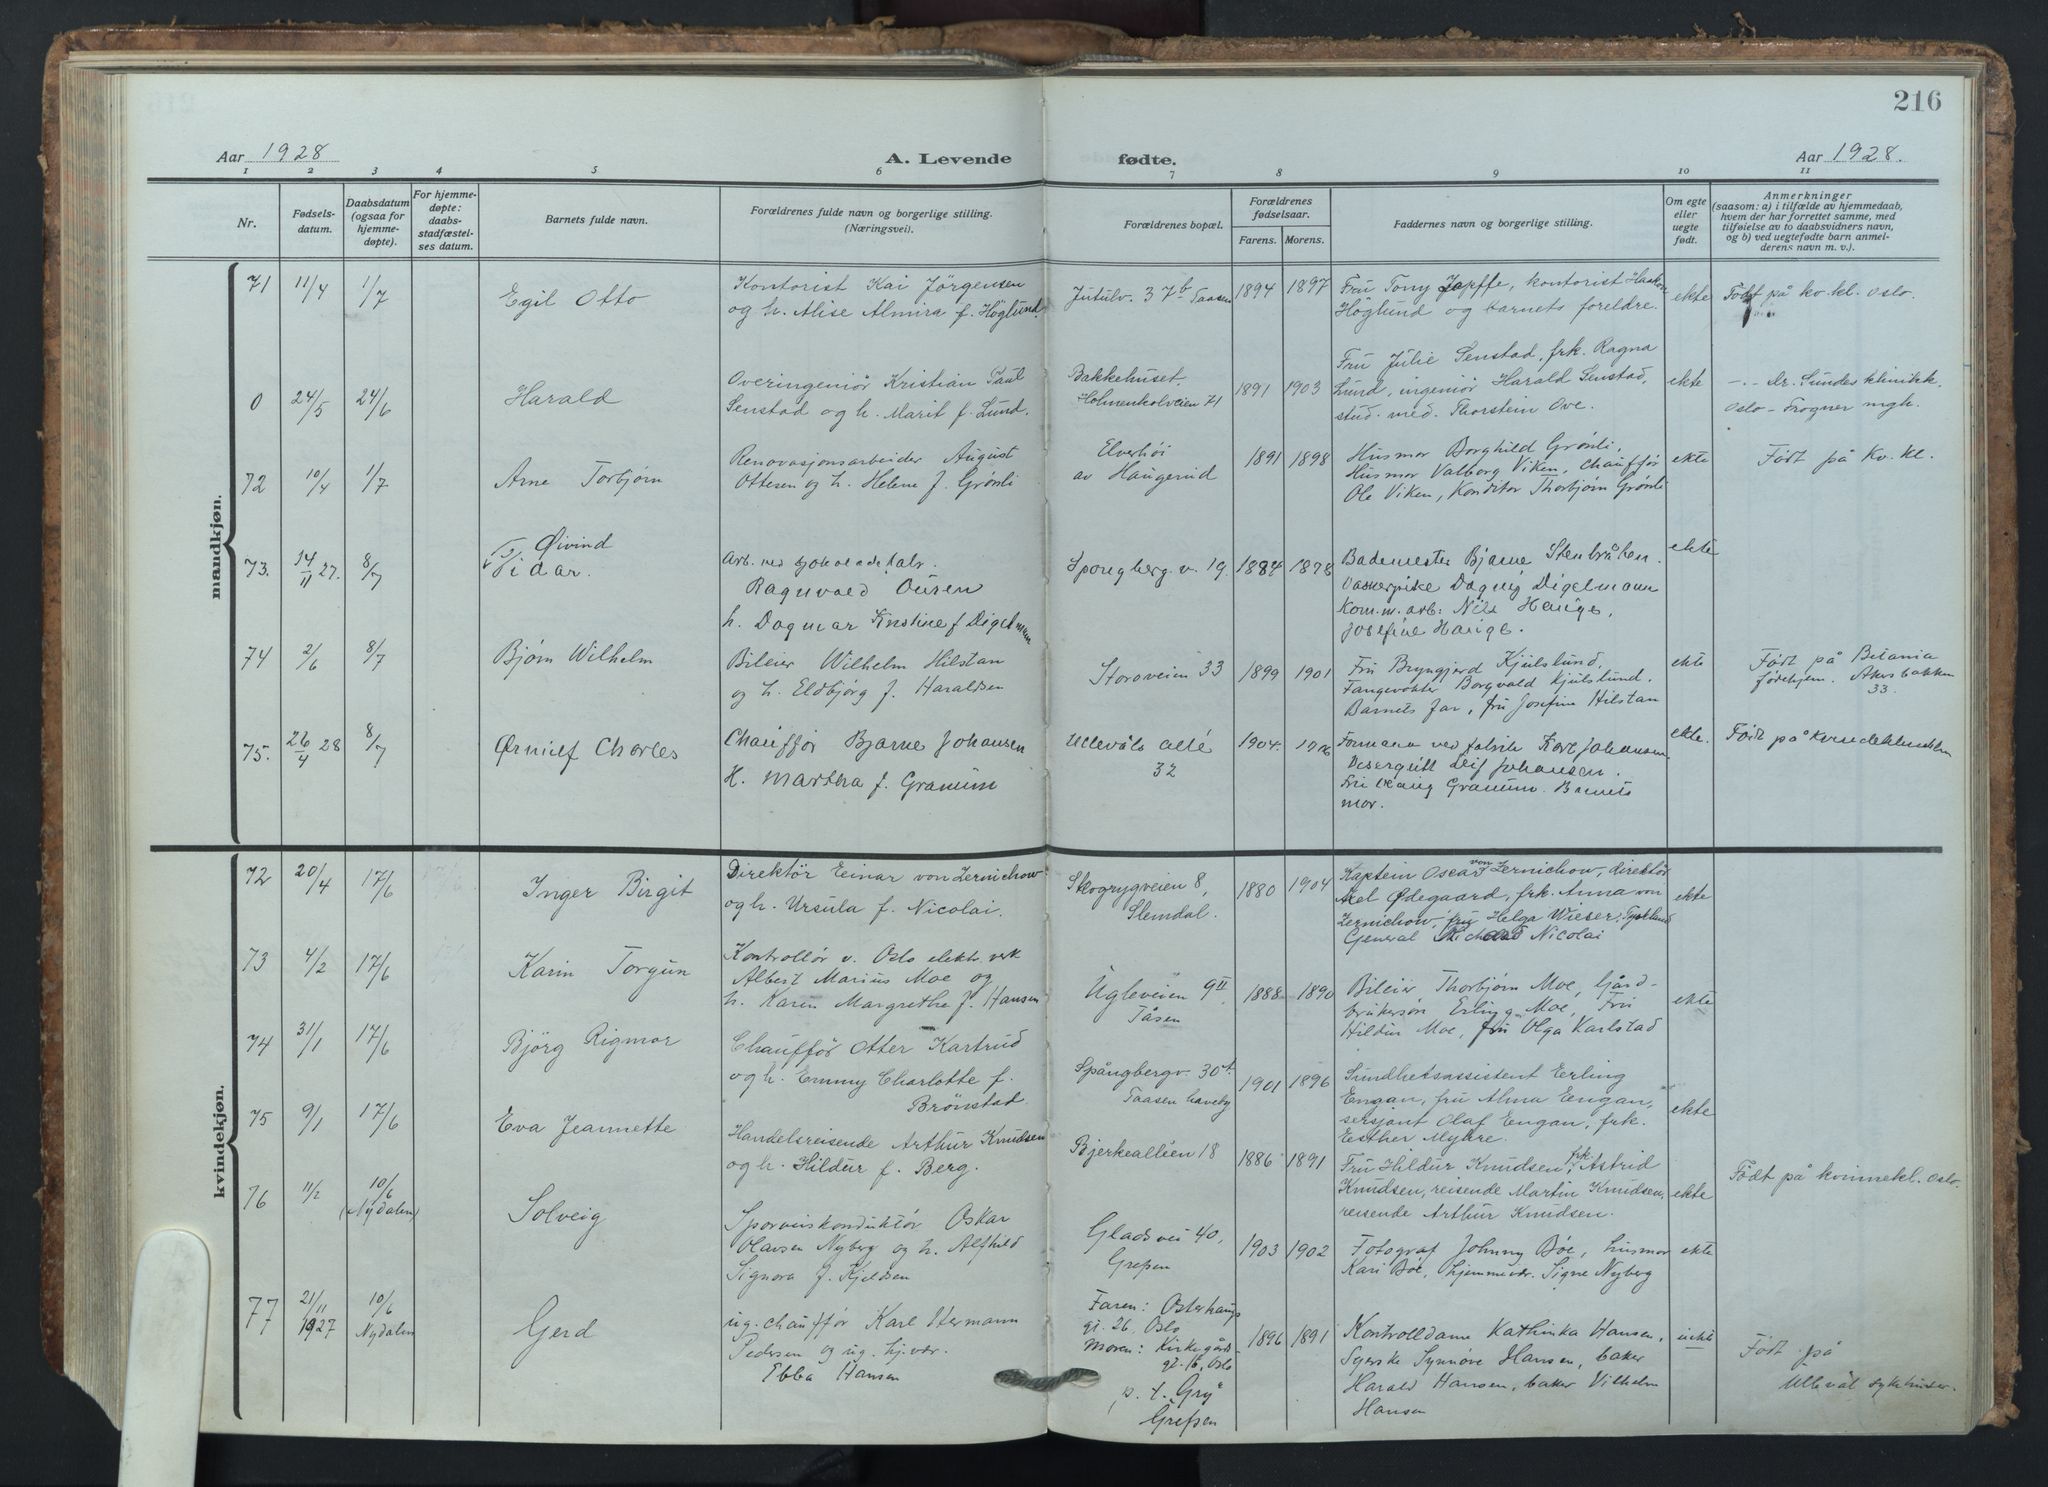 216
Aar 1928
A. Levende fødte.
Aar 1928.
1 2 3 4 5 6 7 8 9 10 11
Nr.
Fødsels-
datum.
Daabsdatum
(ogsaa for
hjemme-
døpte).
For hjemme-
døpte:
daabs-
stadfæstel-
ses datum.
Barnets fulde navn.
Forældrenes fulde navn og borgerlige stilling.
(Næringsvei).
Forældrenes bopæl.
Forældrenes
fødselsaar.
Farens. Morens.
Faddernes navn og borgerlige stilling.
Om egte
eller
uegte
født.
Anmerkninger
(saasom: a) i tilfælde av hjemmedaab,
hvem der har forrettet samme, med
tilføielse av to daabsvidners navn,
og b) ved uegtefødte barn anmel-
derens navn m. v.).
mandkjøn.
71 11/4 1/7
Egil Otto
Kontorist Kai Jørgensen
og h. Alise Almira f. Höglund.
Jutulv. 37b Taasen
1894 1897
Fru Tony Jappe, kontorist Haakon
Höglund og barnets foreldre.
ekte
Født på kv.kl. Oslo.
0 24/5 24/6
Harald
Overingeniör Kristian Paul
Senstad og h. Marit f. Lund.
Bakkehuset,
Holmenkolveien 71
1891 1903
Fru Julie Senstad, frk. Ragna
Lund, ingeniör Harald Senstad,
stud. med. Thorstein Ove.
ekte
-.- dr. Sundes klinikk.
Oslo - Frogner mgh.
72 10/4 1/7
Arne Torbjørn
Renovasjonsarbeider August
Ottesen og h. Helene f. Grønli
Elverhöi
av Haugerud
1891 1898
Husmor Borghild Grønli,
Husmor Valborg Viken, Chauffør
Ole Viken, Konditor Thorbjørn Grønli
ekte
Født på Kv. kl.
73. 14/11 27. 8/7
Øivind
Vidar.
Arb. ved
Ragnvald
h. Dagmar Kristine f Digelmann
Spongberg.v. 19.
1884 1878
Bademester Bjarne Stenbråten.
Vaskerpike Dagny Digelmann
Kom.m. arb. Nils Hauge,
Josefine Hauge.
ekte
74 2/6 8/7
Bjørn Wilhelm
Bileier Wilhelm Hilstan
og h. Eldbjørg f. Haraldsen
Storoveien 33
1899 1901
Fru Bryngjerd Kjulslund,
Fangevokter Borgvald Kjulslund.
Barnets far, fru Josefine Hilstan
ekte
Født på Betania
fødehjem. Akersbakken
33.
75. 26/4 28 8/7
Ørnulf Charles
Chauffør Bjarne Johansen
H. Martha f. Granum
Ullevåls allé
32
1904.
Formann ved fabrik Karl Johansen
Visergutt Leif Johansen.
Fru Granum. Barnets
mor.
ekte.
Født på Kvindeklinikken
kvindekjøn.
72 20/4 17/6
Inger Birgit
Direktör Einar von Zernichow
og h. Ursula f. Nicolai.
Skogrygveien 8,
Slemdal.
1880 1904
Kaptein Oscar von Zernichow, direktör
Axel Ødegaard, frk. Anna von
Zernichow, fru Helga Wieser, Tyskland
General Nicolai
ekte
73 4/2 17/6
Karin Torgun
Kontrollør v. Oslo elektr. verk
Albert Marius Moe og
h. Karen Margrethe f. Hansen
Ugleveien 9II,
Tåsen
1888 1890
Bileier Thorbjørn Moe, Gård-
brukersøn Erling Moe, Fru
Hildur Moe, fru Olga Karlstad
ekte
74 31/1 17/6
Björg Rigmor
Chauffør Otter Kartrud
og h. Emmy Charlotte f.
Brönstad.
Spångbergv. 30
Taasen haveby
1901 1896
Sundhetsassistent Erling
Engan, fru Alma Engan,
sersjant Olaf Engan, frk.
Esther Myhre.
ekte
75 9/1 17/6
Eva Jeannette
Handelsreisende Arthur Knudsen
og h. Hildur f. Berg.
Bjerkealléen 18
1886 1891
Fru Hildur Knudsen, frk. Astrid
Knudsen, reisende Martin Knudsen,
reisende Arthur Knudsen.
ekte
Født på kvinnekl. Oslo.
76 11/2 10/6
(Nydalen)
Solveig
Sporveiskonduktør Oskar
Olavsen Nyberg og h. Alfhild
Signora f. Kjeldsen
Gladsvei 40,
Grefsen
1903 1902
Fotograf Johnny Bøe, husmor
Kari Bøe, hjemmevær. Signe Nyberg
ekte
77 21/11 1927 10/6
Nydalen
Gerd
ug. chauffør Karl Hermann
Pedersen og ug. hj.vær.
Ebba Hansen
Faren: Osterhaugs
gt. 26. Oslo
Moren: Kirkegårds-
gt. 16, Oslo
p. t. "Gry"
Grefsen
1896 1891
Kontrolldame Kathinka Hansen,
Syerske Synnøve Hansen, baker
Harald Hansen, baker Vilhelm
Hansen
uekte
Født på
Ullevål sykehus.